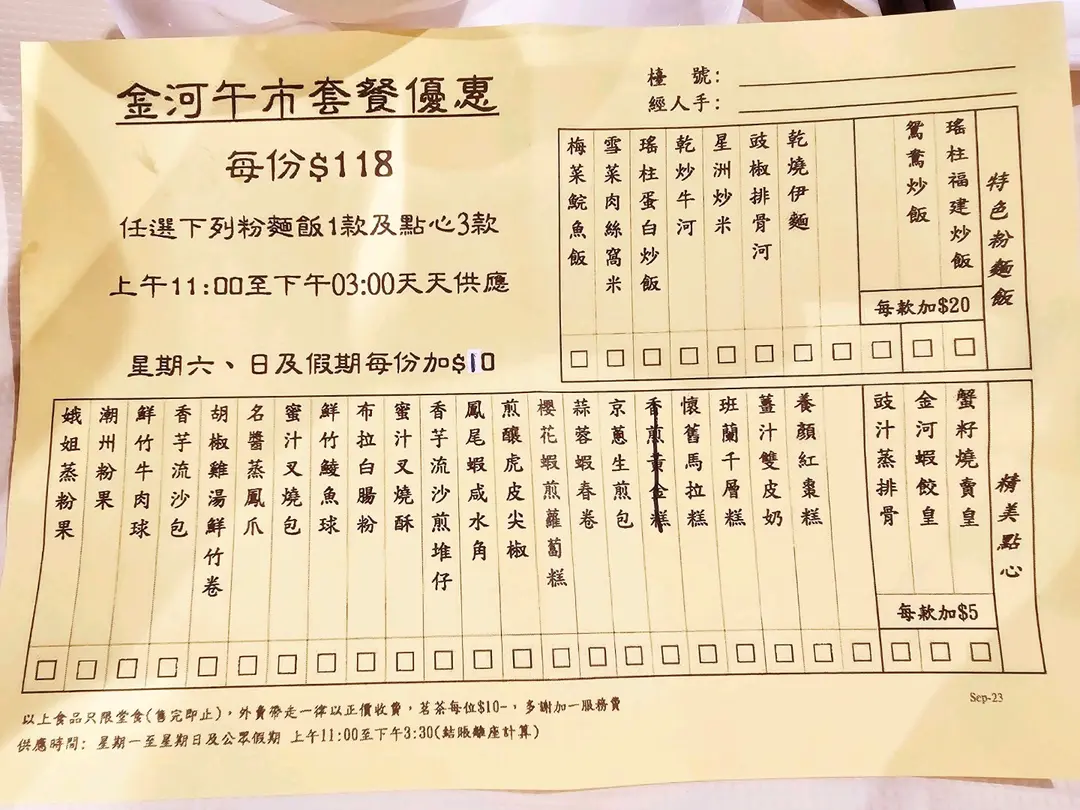 金河午市套餐優惠
每份$118
任選下列粉麵飯1款及點心3款
上午11:00至下午03:00天天供應
星期六、日及假期每份加$10
檯號:
經人手:
特色粉麵飯
瑤柱福建炒飯
鴛鴦炒飯
每款加$20
乾燒伊麵
豉椒排骨河
星洲炒米
乾炒牛河
瑤柱蛋白炒飯
雪菜肉絲窩米
梅菜鯇魚飯
精美點心
蟹籽燒賣皇
金河蝦餃皇
豉汁蒸排骨
每款加$5
養顏紅棗糕
薑汁雙皮奶
班蘭千層糕
懷舊馬拉糕
香煎黃金糕
京蔥生煎包
蒜蓉蝦春卷
櫻花蝦煎蘿蔔糕
煎釀虎皮尖椒
鳳尾蝦咸水角
香芋流沙煎堆仔
蜜汁叉燒酥
布拉白腸粉
鮮竹鯪魚球
蜜汁叉燒包
名醬蒸鳳爪
胡椒雞湯鮮竹卷
香芋流沙包
鮮竹牛肉球
潮州粉果
娥姐蒸粉果
Sep-23
以上食品只限堂食(售完即止)，外賣帶走一律以正價收費，茗茶每位$10-，多謝加一服務費
供應時間: 星期一至星期日及公眾假期 上午11:00至下午3:30(結賬離座計算)